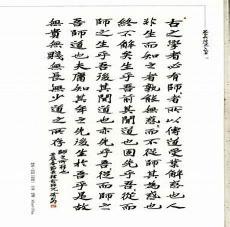 古之學者必有師師者所以傳道受業解惑也人
非生而知之者孰能無惑惑而不從師其為惑也
終不解矣生乎吾前其聞道也固先乎吾吾從而
師之生乎吾後其聞道也亦先乎吾吾從而師之
吾師道也夫庸知其年之先後生於吾乎是故
無貴無賤無長無少道之所存
師之所存也